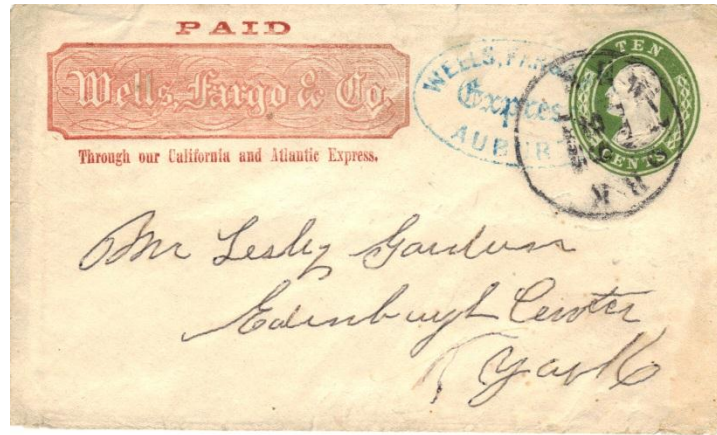 PAID
Wells, Fargo & Co.
Through our California and Atlantic Express.
WELLS, FARGO
Express
AUBUR
TEN
CENTS
Mr Lesley
Edinburgh Center